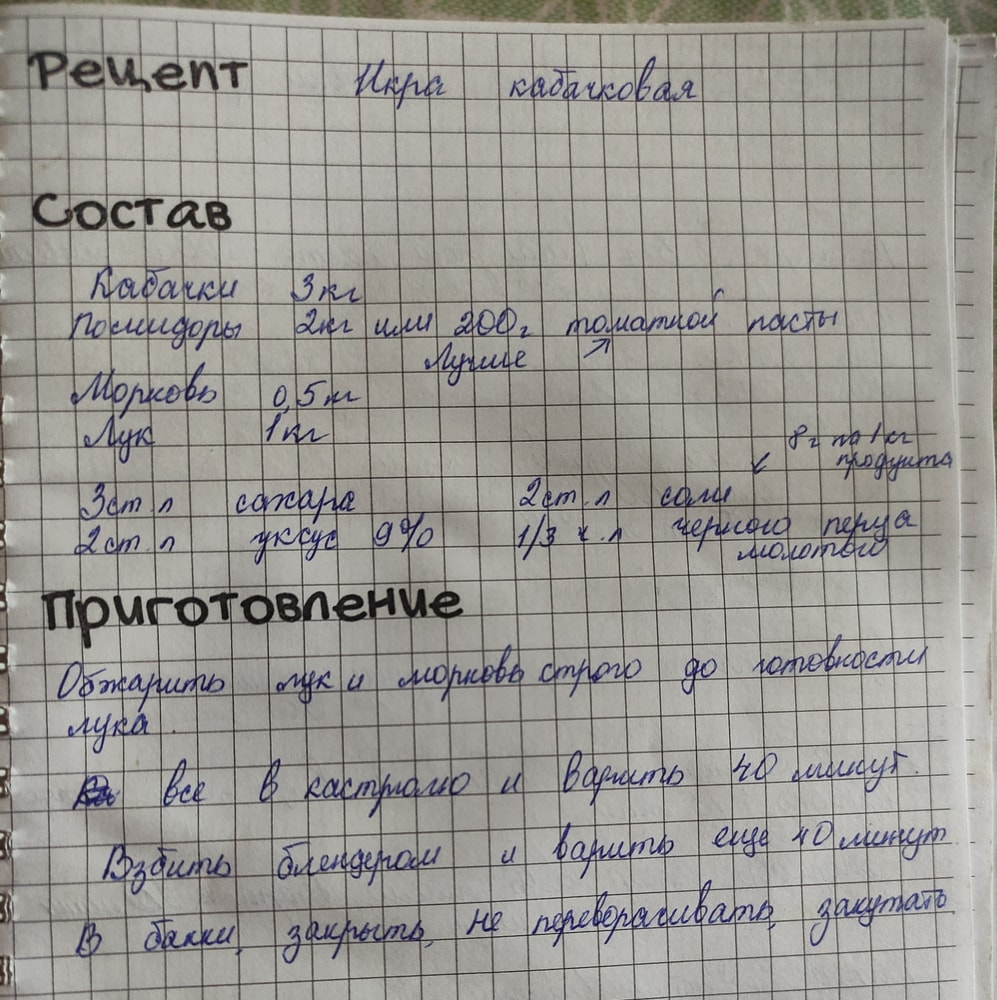 Рецепт Икра кабачковая
Состав
Кабачки 3кг
Помидоры 2кг или 200г томатной пасты
Лучше ↗
Морковь 0,5кг
Лук 1кг
8г на 1кг
↙ продукта
3ст.л сахара 2ст.л соли
2ст.л уксус 9% 1/3 ч.л черного перца
молотого
Приготовление
Обжарить лук и морковь строго до готовности
лука.
все в кастрюлю и варить 40 минут.
Взбить блендером и варить еще 40 минут
В банки, закрыть, не переворачивать, закутать